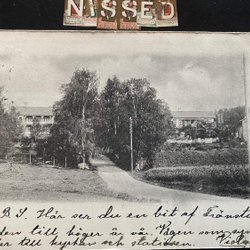 NISSED
P.S. Här ser du en bit af Tränsta
den till höger är vår. Vägen som
er till kyrkan och stationen.